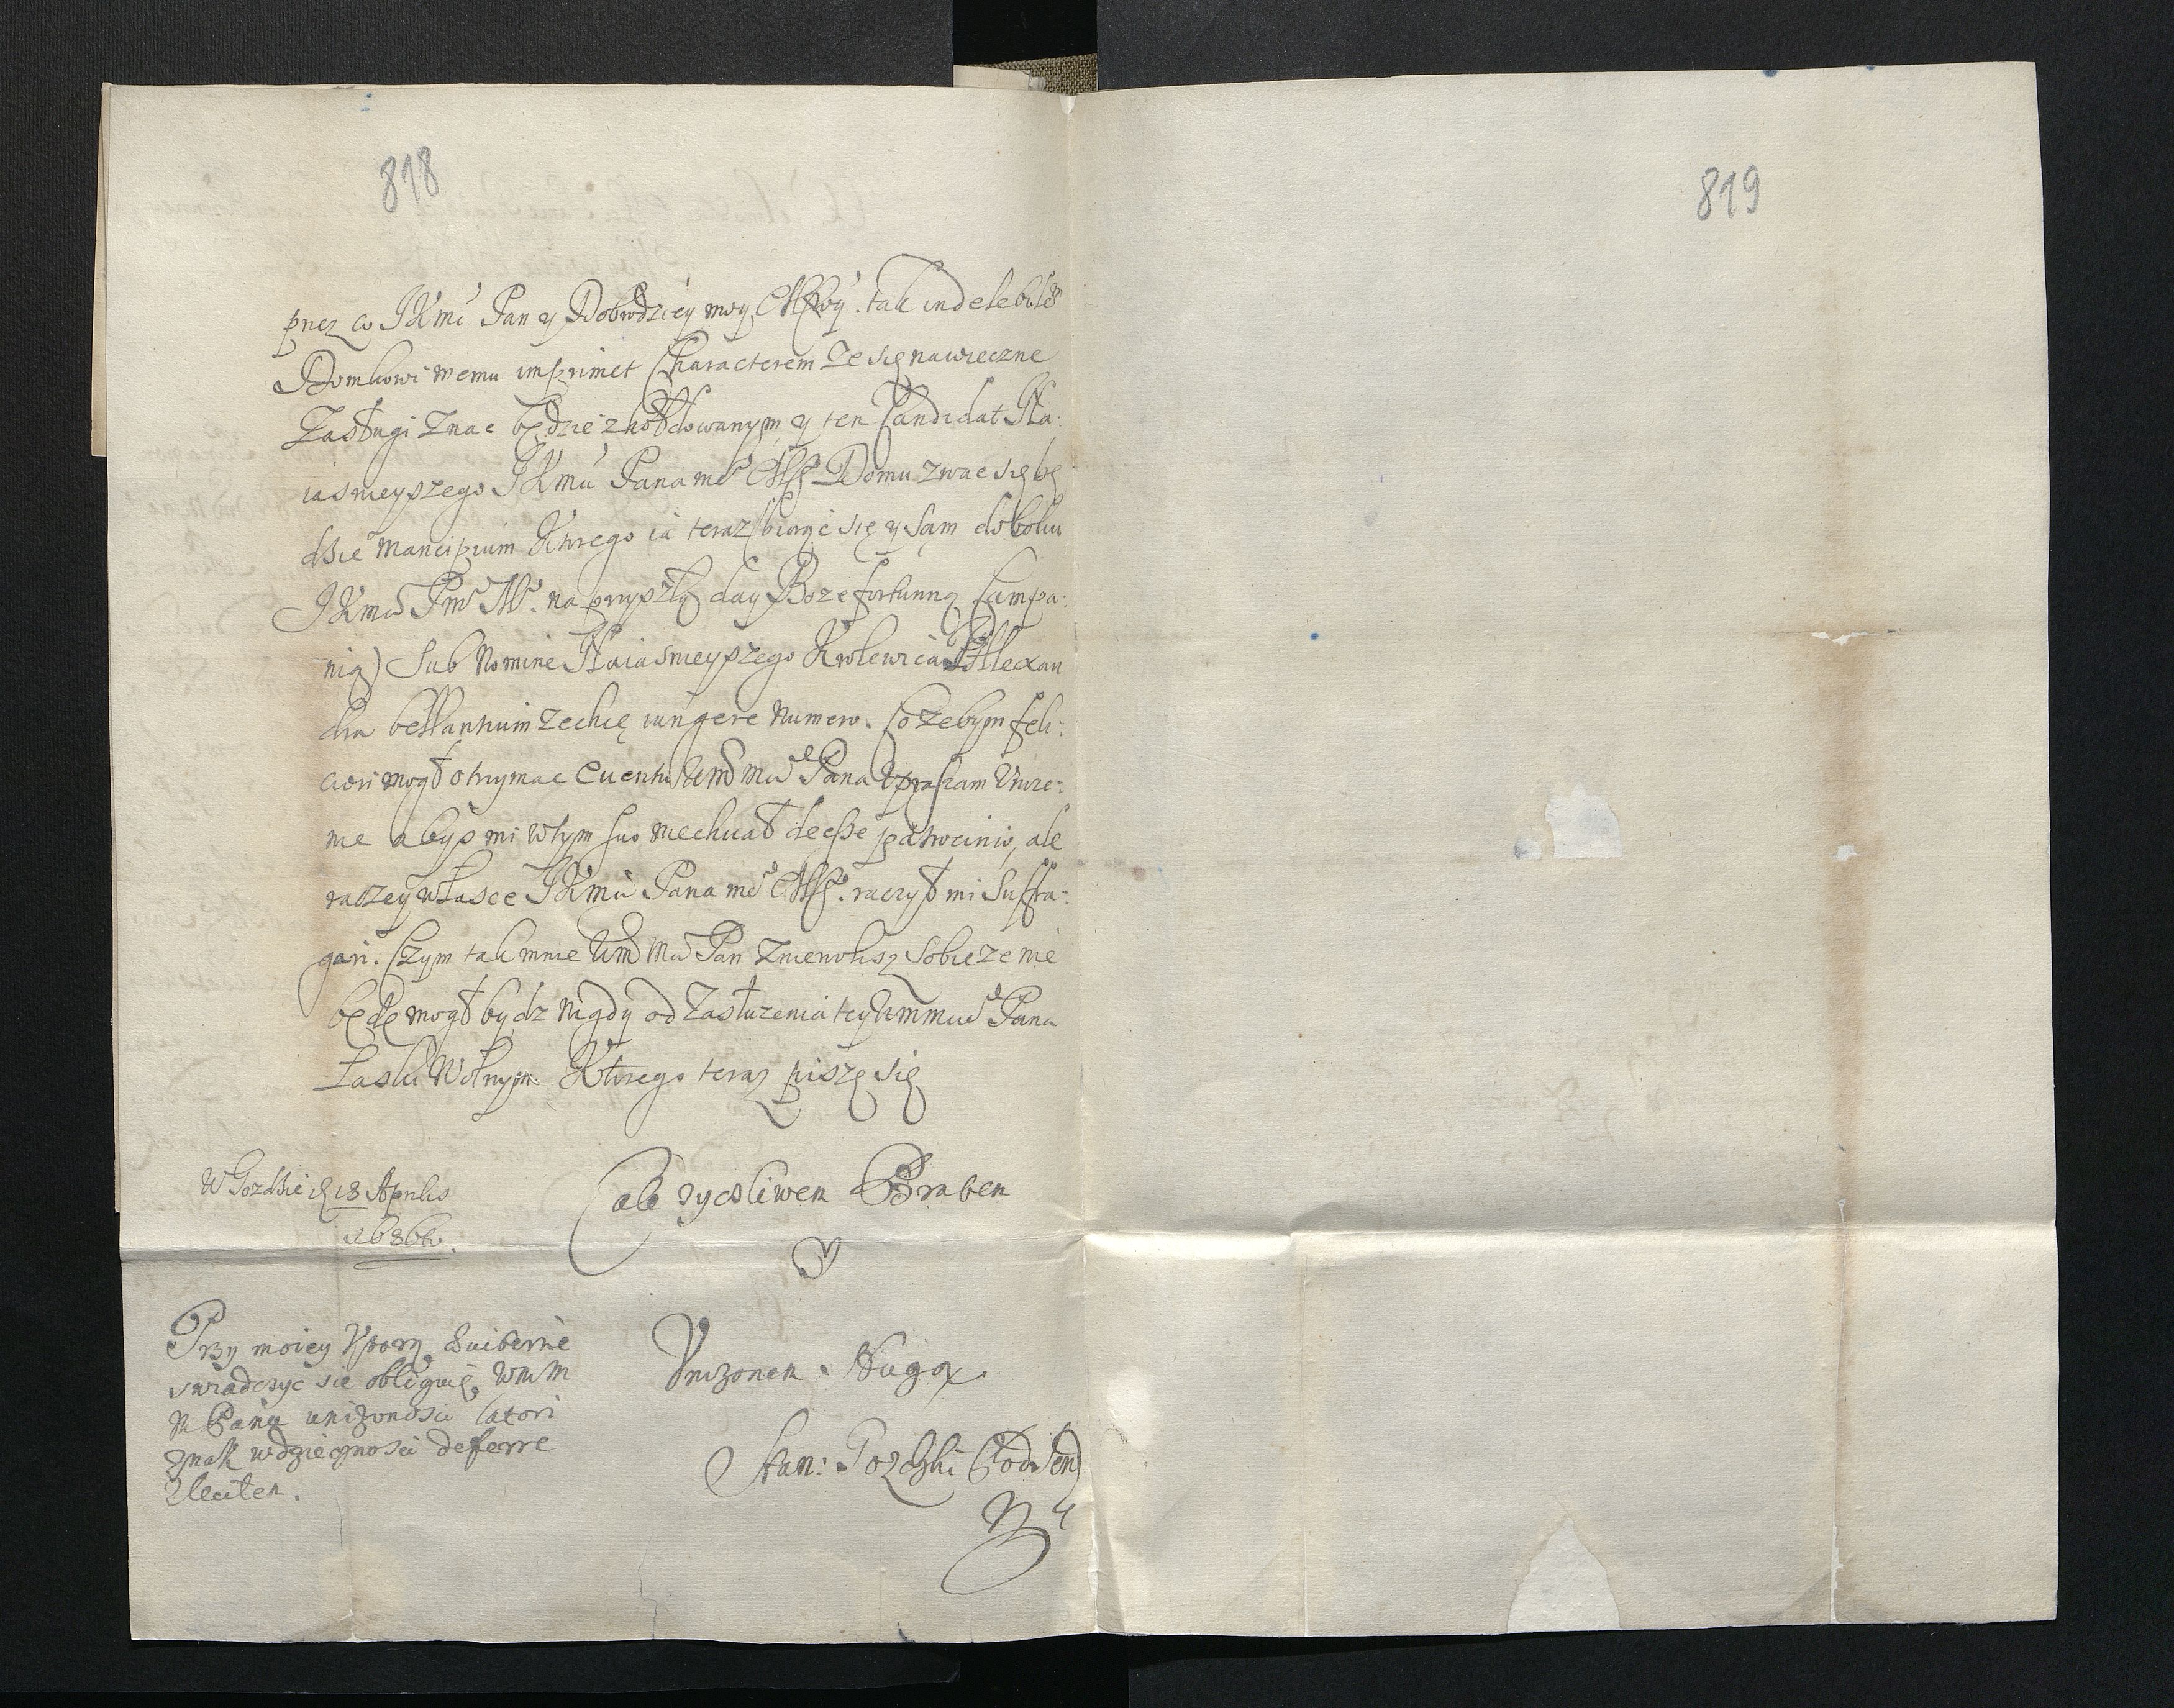 818
819
przez co JKmć Pan y Dobrodziey moy tak indelebilem
Domkowi memu imprimet Characterem ze się na wieczne
Zasługi znac będzie zhołdowanym y ten Candidat Na:
iasnieyszego JKmci Pana me Domu zwac się bę
dzie Mancipium Ktorego ia teraz biorąc się y sam do boku
JKmci Pmc na przyszłą day Boze fortunną Campa:
nią) Sub Nomine Naiasnieyszego Krolewica Alexan
dra bellantium zechcę iungere Numero. Co zebym feli:
ciori mogł otrzymac Euentu Wmc mc Pana Upraszam Unize:
nie abys mi w tym suo niechciał deesse patrocinio, ale
raczey w łasce JKmci Pana me raczył mi suffra:
gari. Czym tak mnie Wm Mc Pan zniewolisz sobie ze nie
będę mogł bydz nigdy od zasłuzenia tey Wmmc Pana
Łaski Wolnym. Ktorego teraz piszę się
W Gozdzie d 18 Aprilis
1686to.
cale zycsliwem Bratem
y
Unizonem Sługą
Stan: Gozdzki Podsend
Przy moiey
swiadczyc sie obliguię, WmM
M Panu unizonosci latori
znak wdzięcznosci deferre
zleciłem.